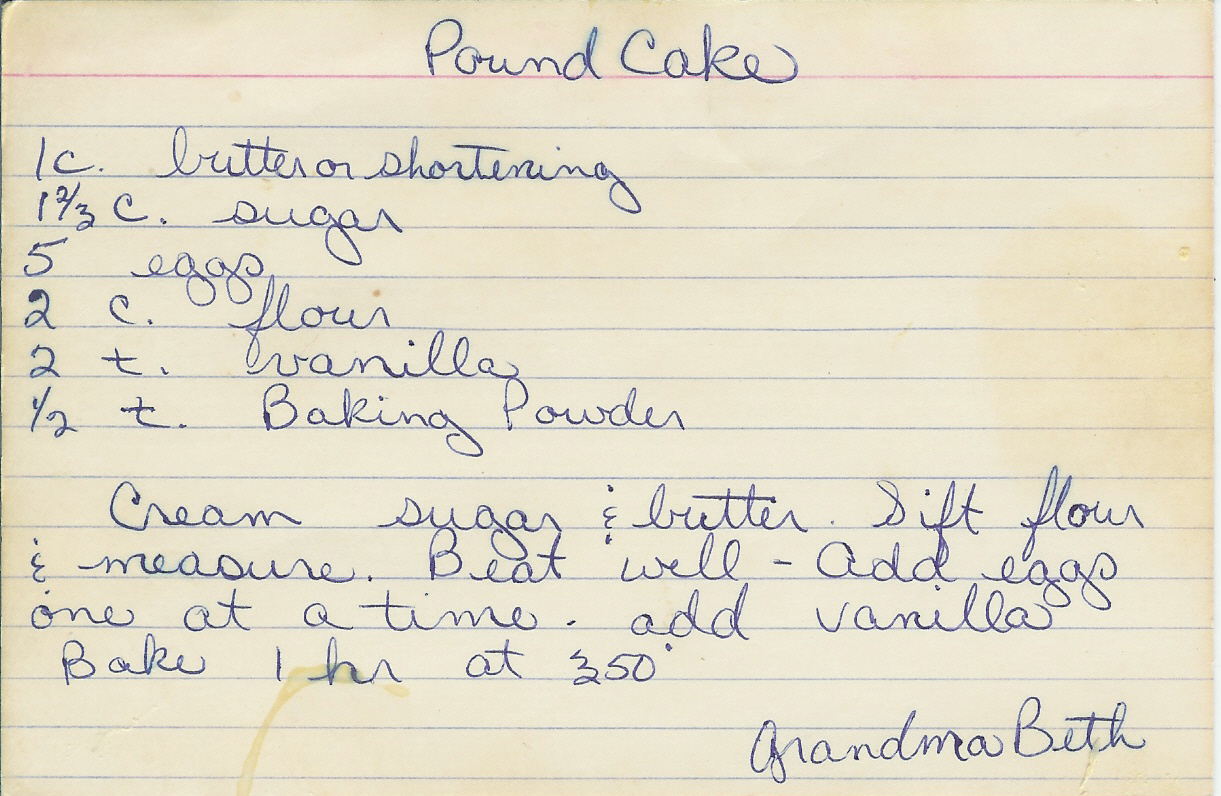 Pound Cake
1c. butter or shortening
1 2/3 c. sugar
5 eggs
2 c. flour
2 t. vanilla
1/2 t. Baking Powder
Cream sugar & butter. Sift flour
& measure. Beat well - Add eggs
one at a time. add vanilla
Bake 1 hr at 350°
Grandma Beth